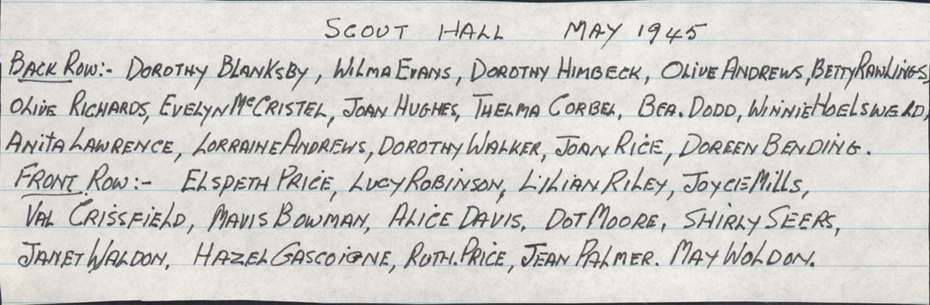 SCOUT HALL MAY 1945
BACK ROW:- DOROTHY BLANKSBY, WILMA EVANS, DOROTHY HIMBECK, OLIVE ANDREWS, BETTY RAWLINGS,
OLIVE RICHARDS, EVELYN McCRISTEL, JOAN HUGHES, THELMA CORBEL, BEA. DODD, WINNIE HOELSWERD,
ANITA LAWRENCE, LORRAINE ANDREWS, DOROTHY WALKER, JOAN RICE, DOREEN BENDING.
FRONT ROW:- ELSPETH PRICE, LUCY ROBINSON, LILIAN RILEY, JOYCE MILLS,
VAL CRISSFIELD, MAVIS BOWMAN, ALICE DAVIS, DOT MOORE, SHIRLY SEERS,
JANET WALDON, HAZEL GASCOIGNE, RUTH. PRICE, JEAN PALMER. MAY WOLDON.